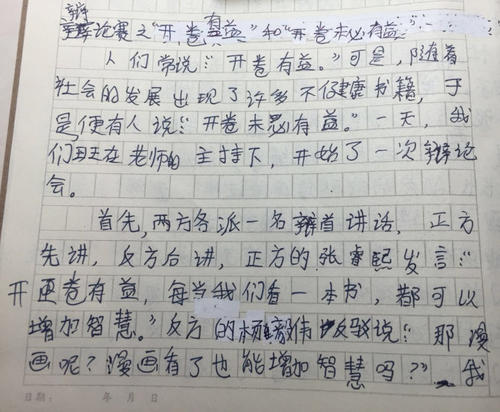 辩论赛之“开卷有益”和“开卷未必有益”
人们常说：“开卷有益。”可是，随着
社会的发展出现了许多不健康书籍，于
是便有人说：“开卷未必有益。”一天，我
们班在老师的主持下，开始了一次辩论
会。
首先，两方各派一名辩首讲话，正方
先讲，反方后讲，正方的张睿熙发言：“
开卷有益，每当我们看一本书，都可以
增加智慧。”反方的 反驳说：“那漫
画呢？漫画看了也能增加智慧吗？”我
日期： 年 月 日